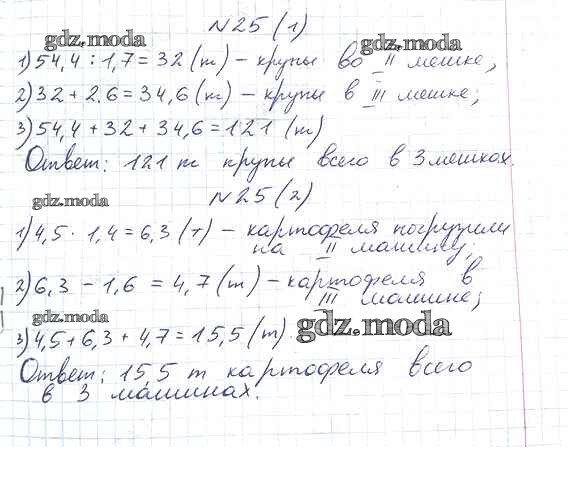 №25(1)
gdz.moda
gdz.moda
1) 54,4 : 1,7 = 32 (т) – крупы во II мешке,
2) 32 + 2,6 = 34,6 (т) – крупы в III мешке;
3) 54,4 + 32 + 34,6 = 121 (т)
Ответ: 121 т крупы всего в 3 мешках.
№25(2)
gdz.moda
1) 4,5 · 1,4 = 6,3 (т) – картофеля погрузили
на II машину;
2) 6,3 – 1,6 = 4,7 (т) – картофеля в
III машине;
gdz.moda
gdz.moda
3) 4,5 + 6,3 + 4,7 = 15,5 (т).
Ответ: 15,5 т картофеля всего
в 3 машинах.